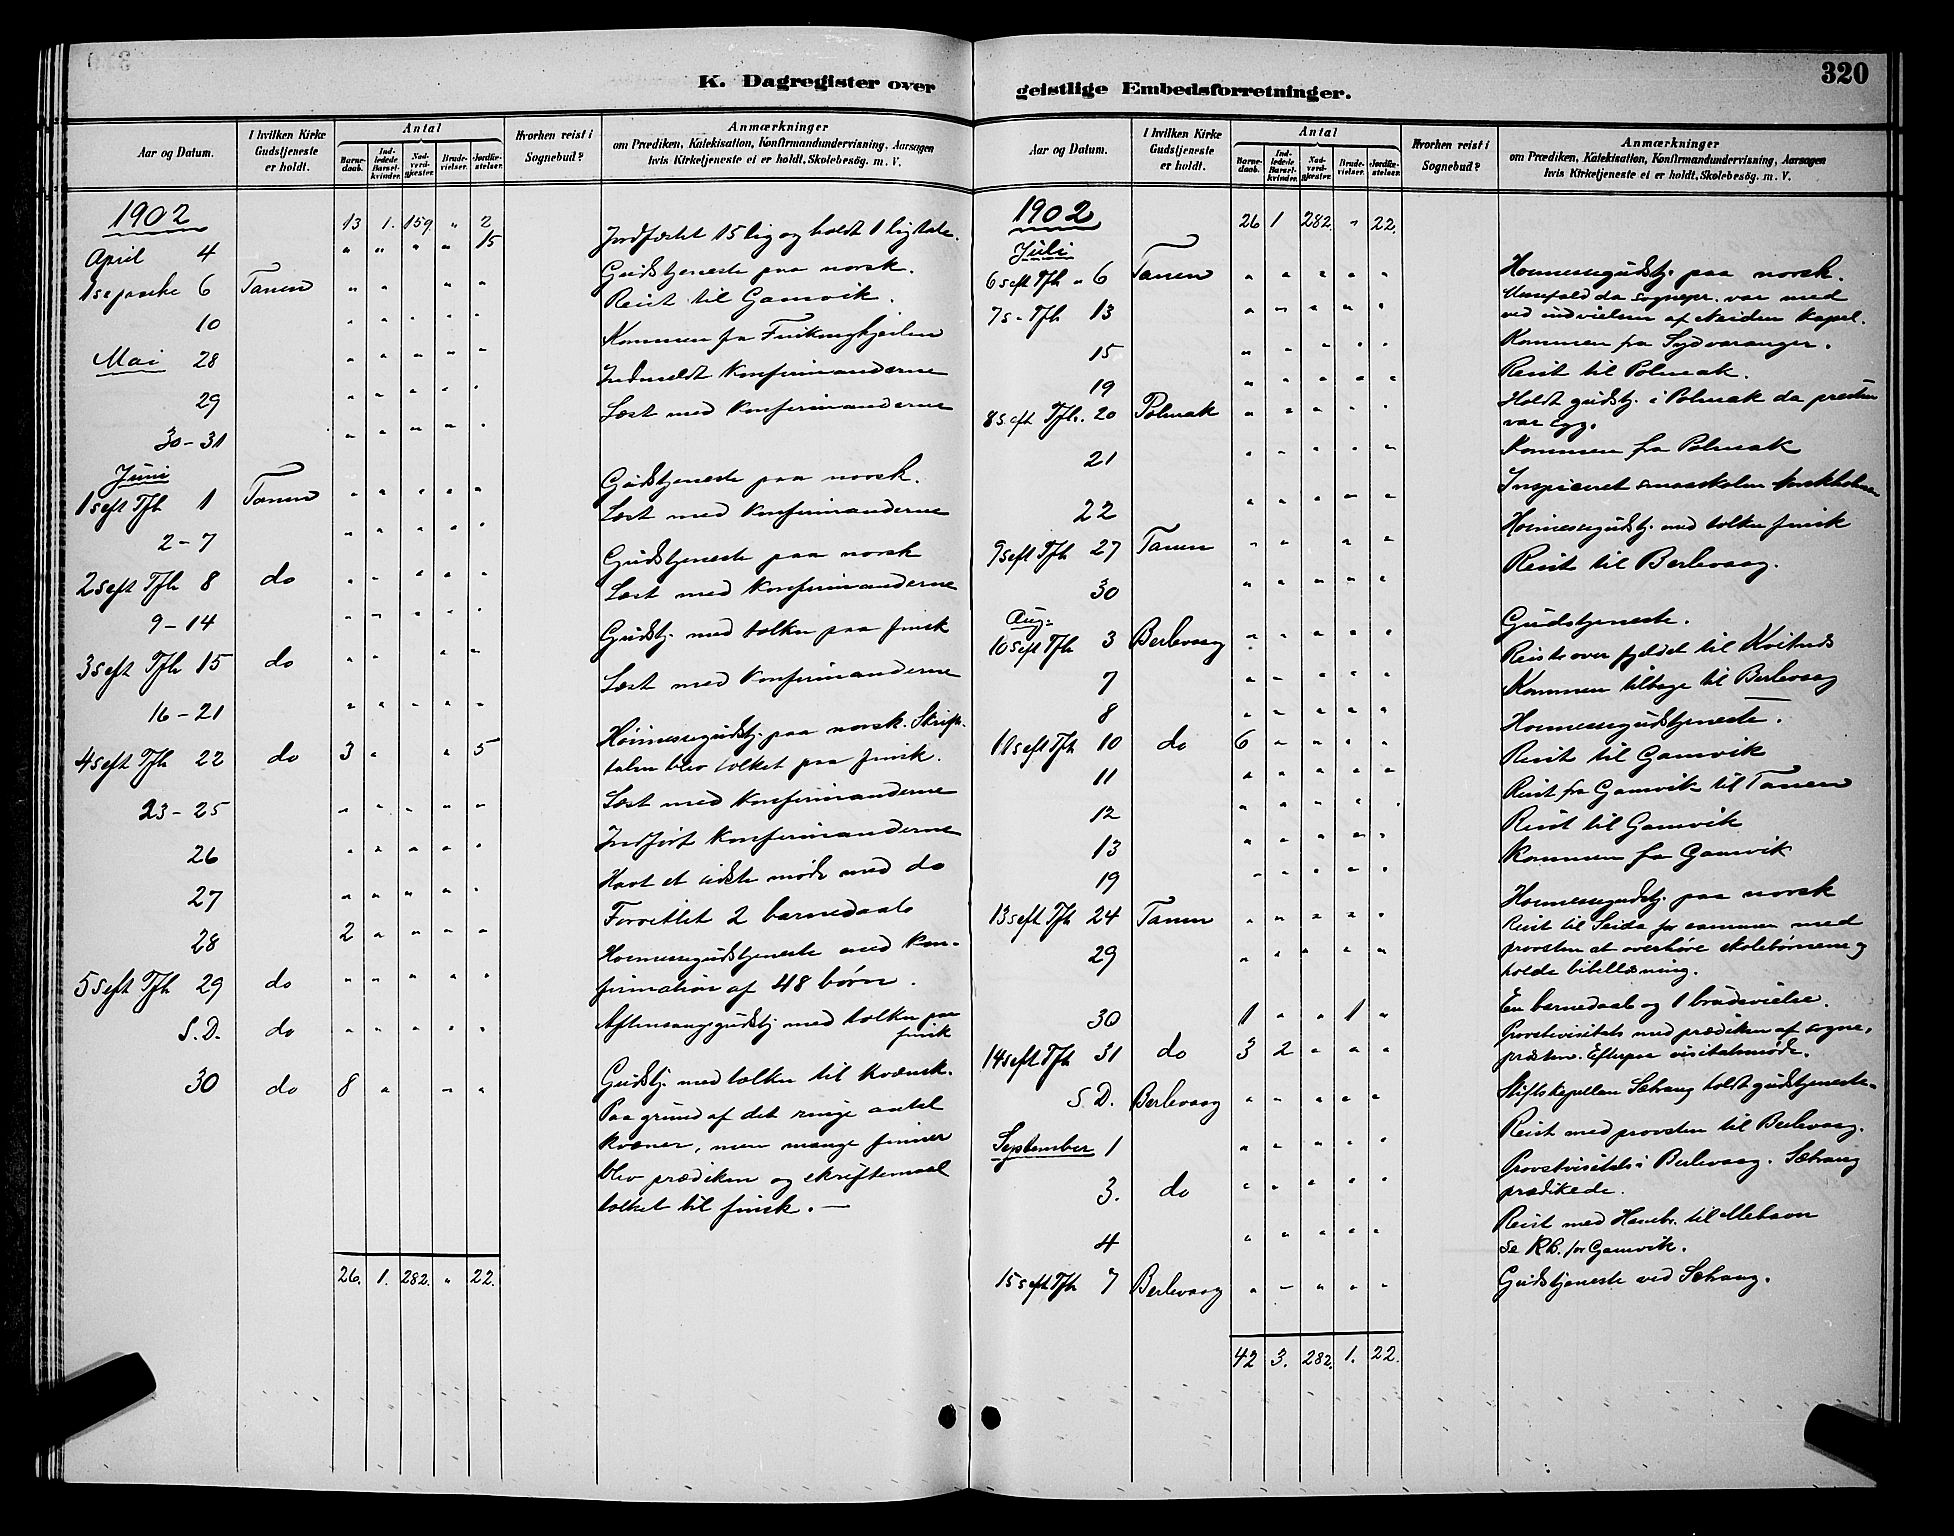 320
K. Dagregister over
geistlige Embedsforretninger.
Aar og Datum. I hvilken Kirke Gudstjeneste er holdt. Antal Barnedaab. Indledede Barselkvinder. Nadverdgjester. Brudevielser. Jordfæstelser. Hvorhen reist i Sognebud? Anmærkninger om Prædiken, Katekisation, Konfirmandundervisning, Aarsagen hvis Kirketjeneste ei er holdt, Skolebesøg. m. V.
1902 13 1. 159. " 2
April 4 " " " " 15 Jordfæstet 15 lig og holdt 1 ligtale.
1 s e paaske 6 Tanen " " " " Gudstjeneste paa norsk.
10 " " " " " Reist til Gamvik.
Mai 28 " " " " " Kommen fra
29 " " " " " Indmeldt Konfirmanderne
30-31 " " " " " Læst med Konfirmanderne
Juni
1 s eft Tfh 1 Tanen " " " " " Gudstjeneste paa norsk.
2-7 " " " " " Læst med Konfirmanderne
2 s eft Tfh 8 do " " " " " Gudstjeneste paa norsk
9-14 " " " " " Læst med Konfirmanderne
3 s eft Tfh 15 do " " " " Gudstj. med tolken paa finsk
16-21 " " " " " Læst med Konfirmanderne
4 s eft Tfh 22 do 3 " " 5 Høimessegudstj. paa norsk. Skrift-
talen blev tolket paa finsk.
23-25 " " " " " Læst med Konfirmanderne
26 " " " " " Indført Konfirmanderne
27 " " " " " Havt et sidste møde med do
28 2 " " " " Forrettet 2 barnedaab
5 s eft Tfh 29 do " " " " " Høimessegudstjeneste med kon-
firmation af 48 børn.
S. D. do " " " " " Aftensangsgudstj med tolken paa
finsk
30 do 8 " " " Gudstj. med tolken til kvænsk.
Paa grund af det ringe antal
kvæner, men mange finner
blev prædiken og skriftemaal
tolket til finsk. —
26. 1. 282. " 22.
Aar og Datum. I hvilken Kirke Gudstjeneste er holdt. Antal Barnedaab. Indledede Barselkvinder. Nadverdgjester. Brudevielser. Jordfæstelser. Hvorhen reist i Sognebud? Anmærkninger om Prædiken, Katekisation, Konfirmandundervisning, Aarsagen hvis Kirketjeneste ei er holdt, Skolebesøg. m. V.
1902 26 1 282. " 22.
Juli
6 s eft Tfh " 6 Tanen " " " " " Høimessegudstj. paa norsk.
7 s - Tfh 13 " " " " " Messefald da sognepr. var med
ved indvielsen af Neiden Kapel.
15 " " " " " Kommen fra Sydvaranger.
19 " " " " " Reist til Polmak.
8 s eft Tfh. 20 Polmak " " " " " Holdt gudstj. i Polmak da præsten
var syg.
21 " " " " " Kommen fra Polmak
22 " " " " " Inspiceret smaaskolen
9 s eft Tfh 27 Tanen " " " " Høimessegudstj. med tolken finsk
30 " " " " " Reist til Berlevaag.
Aug:
10 s eft Tfh 3 Berlevaag " " " " " Gudstjeneste.
7 " " " " " Reiste over fjeldet til Kvitnæs
8 " " " " " Kommen tilbage til Berlevaag
11 s eft Tfh 10 do 6 " " " " Høimessegudstjeneste.
11 " " " " " Reist til Gamvik
12 " " " " " Reist fra Gamvik til Tanen
13 " " " " " Reist til Gamvik
19 " " " " " Kommen fra Gamvik
13 s eft Tfh 24 Tanen " " " " " Høimessegudstj. paa norsk
29 " " " " " Reist til Seida for sammen med
provsten at overhøre skolebørnene og
holde bibellæsning.
30 1 " " 1 " En barnedaab og 1 brudevielse.
14 s eft Tfh 31 do 3 2 " " " Provstevisitats med prædiken af sogne-
præsten. Efterpaa visitatsmøde.
S. D. Berlevaag " " " " " Stiftskapellan Sætrang holdt gudstjeneste.
September 1 " " " " " Reist med provsten til Berlevaag.
3. do " " " " " Provstevisitats i Berlevaag. Sætrang
prædikede.
4 " " " " " Reist med Hannebr. til Mehavn
se KB. for Gamvik.
15 s eft Tfh 7 Berlevaag " " " " " Gudstjeneste ved Sætrang.
42 3. 282. 1. 22.